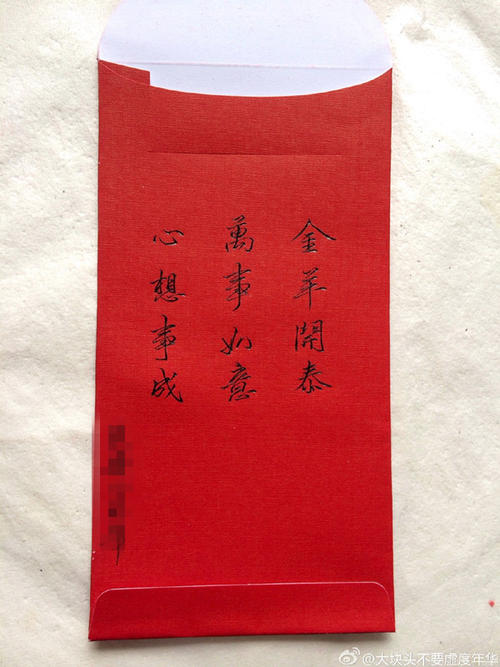 金羊開泰
萬事如意
心想事成
@大块头不要虚度年华